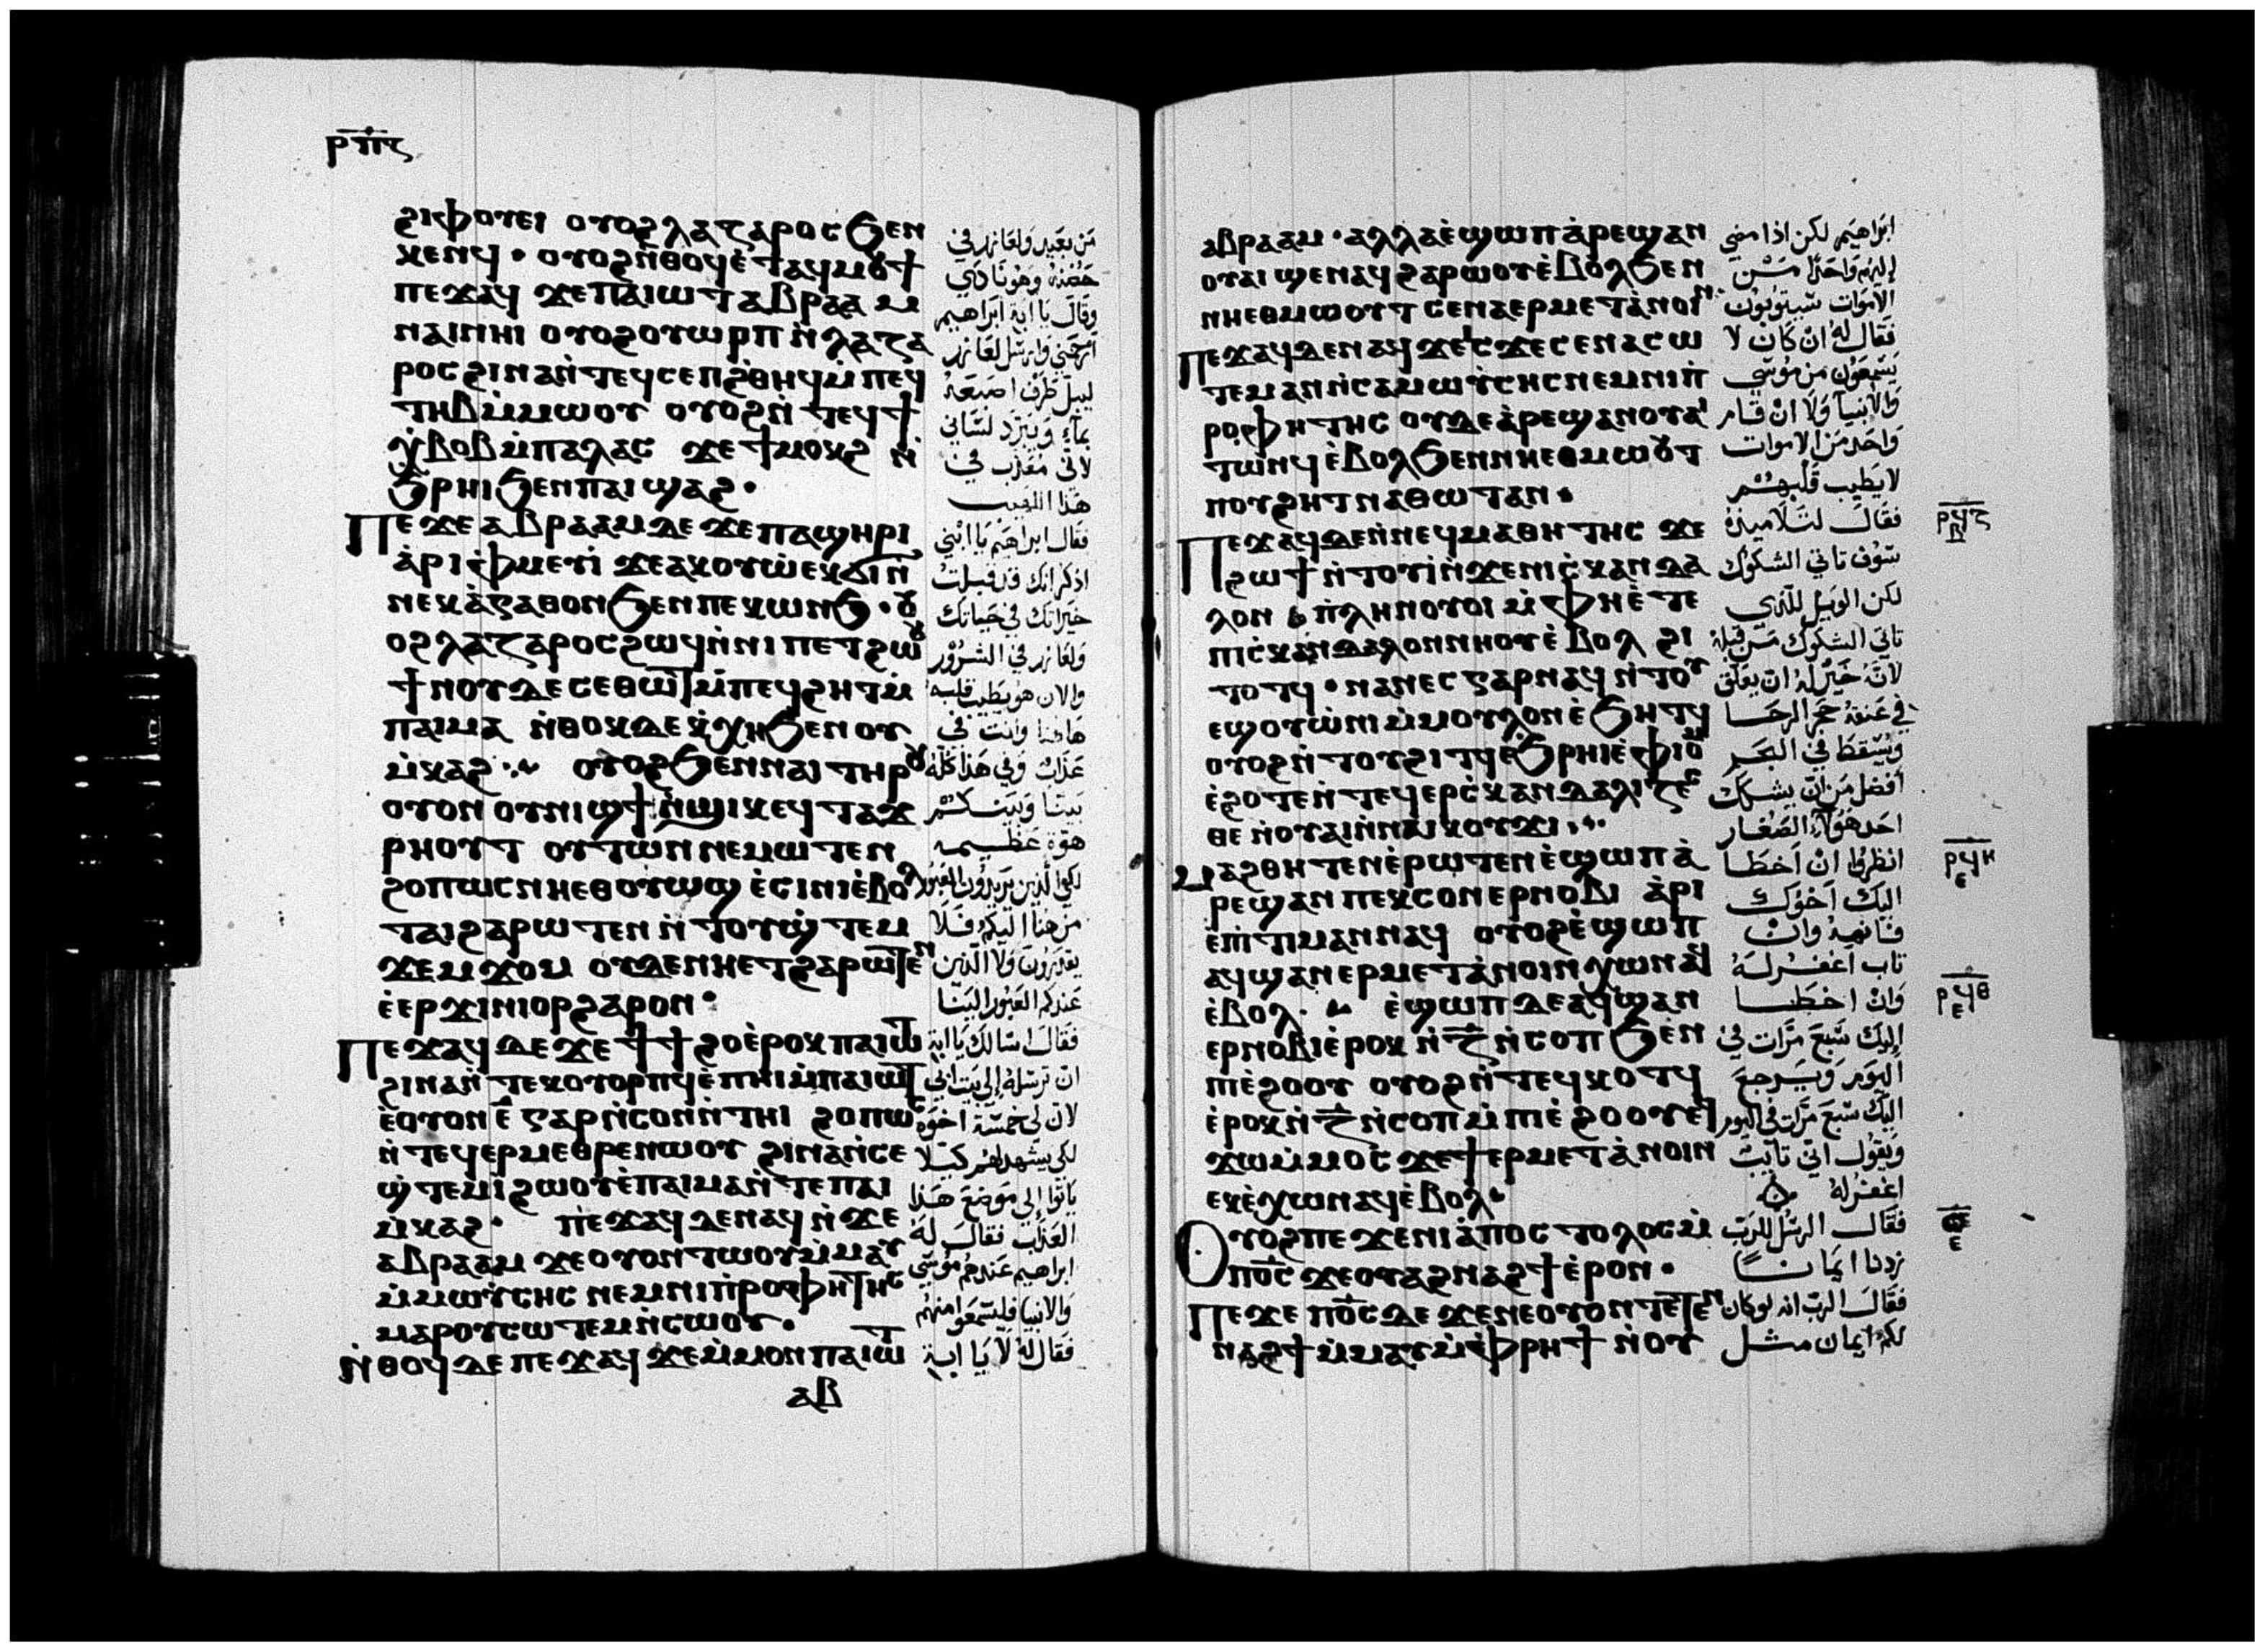 ⲣⲡⲋ
ϩⲓⲫⲟⲩⲉⲓ ⲟⲩⲟϩ ⲗⲁⲍⲁⲣⲟⲥ ϧⲉⲛ
ⲕⲉⲛϥ · ⲟⲩⲟϩ ⲛ̀ⲑⲟϥ ⲉ̀ⲧⲁϥⲙⲟⲩϯ
ⲡⲉϫⲁϥ ϫⲉ ⲡⲁⲓⲱⲧ ⲁⲃⲣⲁⲁⲙ
ⲛⲁⲓ ⲛⲏⲓ ⲟⲩⲟϩ ⲟⲩⲱⲣⲡ ⲛ̀ⲗⲁⲍⲁ
ⲣⲟⲥ ϩⲓⲛⲁ ⲛ̀ⲧⲉϥⲥⲉⲡ ϩ̀ⲑⲏϥ ⲙⲡⲉϥ
ⲧⲏⲃ ⲙ̀ⲙⲱⲟⲩ ⲟⲩⲟϩ ⲛ̀ⲧⲉϥϯ
ⲭ̀ⲃⲟⲃ ⲙ̀ⲡⲁⲗⲁⲥ ϫⲉ ϯⲙⲟⲕϩ ⲛ̀
ϧⲣⲏⲓ ϧⲉⲛ ⲡⲁⲓϣⲁϩ ·
Ⲡⲉϫⲉ ⲁⲃⲣⲁⲁⲙ ⲇⲉ ϫⲉ ⲡⲁϣⲏⲣⲓ
ⲁ̀ⲣⲓⲫ̀ⲙⲉⲩⲓ̀ ϫⲉ ⲁⲕⲟⲩⲱ ⲉⲕϭⲓ ⲛ̀
ⲛⲉⲕⲁ̀ⲅⲁⲑⲟⲛ ϧⲉⲛ ⲡⲉⲕⲱⲛϧ · ⲟⲩ
ⲟϩ ⲗⲁⲍⲁⲣⲟⲥ ϩⲱϥ ⲛ̀ⲛⲓⲡⲉⲧϩⲱⲟⲩ
ϯⲛⲟⲩ ⲇⲉ ⲥⲉⲑⲱⲧ ⲙ̀ⲡⲉϥϩⲏⲧ ⲙ̀
ⲡⲁⲓⲙⲁ ⲛ̀ⲑⲟⲕ ⲇⲉ ⲕ̀ⲭⲏ ϧⲉⲛ ⲟⲩ
ⲙ̀ⲕⲁϩ · ⲟⲩⲟϩ ϧⲉⲛ ⲛⲁⲓ ⲧⲏⲣⲟⲩ
ⲟⲩⲟⲛ ⲟⲩⲛⲓϣϯ ⲛ̀ϣⲓⲕ ⲉϥⲧⲁϫ
ⲣⲏⲟⲩⲧ ⲟⲩⲧⲱⲛ ⲛⲉⲙⲱⲧⲉⲛ
ϩⲟⲡⲱⲥ ⲛⲏⲉⲑⲟⲩⲱϣ ⲉ̀ⲥⲓⲛⲓ ⲉ̀ⲃⲟⲗ
ⲧⲁⲓ ϩⲁⲣⲱⲧⲉⲛ ⲛ̀ⲧⲟⲩϣ̀ⲧⲉⲙ
ϫⲉⲙϫⲟⲙ ⲟⲩⲇⲉ ⲛⲏⲉⲧϩⲁⲣⲱⲧⲉⲛ
ⲉ̀ⲉⲣϫⲓⲛⲓⲟⲣ ϩⲁⲣⲟⲛ ·
Ⲡⲉϫⲁϥ ⲇⲉ ϫⲉ ϯϯϩⲟ ⲉ̀ⲣⲟⲕ ⲡⲁⲓⲱⲧ
ϩⲓⲛⲁ ⲛ̀ⲧⲉⲕⲟⲩⲟⲣⲡϥ ⲉ̀ⲡⲏⲓ ⲙ̀ⲡⲁⲓⲱⲧ
ⲉ̀ⲟⲩⲟⲛ ⲉ̄ ⲅⲁⲣ ⲛ̀ⲥⲟⲛ ⲛ̀ⲧⲏⲓ ϩⲟⲡⲱⲥ
ⲛ̀ⲧⲉϥⲉⲣⲙⲉⲑⲣⲉ ⲛⲱⲟⲩ ϩⲓⲛⲁ ⲛ̀ⲥⲉ
ϣ̀ⲧⲉⲙⲓ̀ ϩⲱⲟⲩ ⲉ̀ⲡⲁⲓⲙⲁ ⲛ̀ⲧⲉ ⲡⲁⲓ
ⲙ̀ⲕⲁϩ · ⲡⲉϫⲁϥ ⲇⲉ ⲛⲁϥ ⲛ̀ϫⲉ
ⲁⲃⲣⲁⲁⲙ ϫⲉ ⲟⲩⲟⲛⲧⲱⲟⲩ ⲙ̀ⲙⲁⲩ
ⲙ̀ⲙⲱⲩ̀ⲥⲏⲥ ⲛⲉⲙ ⲛⲓⲡ̀ⲣⲟⲫⲏⲧⲏⲥ
ⲙⲁⲣⲟⲩⲥⲱⲧⲉⲙ ⲛ̀ⲥⲱⲟⲩ ·
ⲛ̀ⲑⲟϥ ⲇⲉ ⲡⲉϫⲁϥ ϫⲉ ⲙ̀ⲙⲟⲛ ⲡⲁⲓⲱⲧ
ⲁⲃ
من بعيد ولعازر في
حضنه وهو نادي
وقال يا ابة ابراهيم
ارحمني وارسل لعازر
ليبل طرف اصبعه
بماء ويبرد لساني
لاني معذب في
هذا اللهيب
فقال ابراهيم يا ابني
اذكر انك قد قبلت
خيراتك في حياتك
ولعازر في الشرور
والان هو يطيب قلبه
هاهنا وانت في
عذاب وفي هذا كله
بيننا وبينكم
هوة عظيمه
لكي الذين يريدون العبور
من هنا اليكم فلا
يقدرون ولا الذين
عندكم العبور الينا
فقال اسالك يا ابة
ان ترسله الى بيت ابي
لان لي خمسة اخوة
لكي يشهد لهم كيلا
ياتوا الى موضع هذا
العذاب فقال له
ابراهيم عندهم موسى
والانبيا فليسمعوا منهم
فقال له لا يا ابة
ⲁⲃⲣⲁⲁⲙ · ⲁⲗⲗⲁ ⲉ̀ϣⲱⲡ ⲁ̀ⲣⲉϣⲁⲛ
ⲟⲩⲁⲓ ϣⲉⲛⲁϥ ϩⲁⲣⲱⲟⲩ ⲉ̀ⲃⲟⲗ ϧⲉⲛ
ⲛⲏⲉⲑⲙⲱⲟⲩⲧ ⲥⲉⲛⲁⲉⲣⲙⲉⲧⲁ̀ⲛⲟⲓⲛ ·
Ⲡⲉϫⲁϥ ⲇⲉ ⲛⲁϥ ϫⲉ ⲓⲥϫⲉ ⲥⲉⲛⲁⲥⲱ
ⲧⲉⲙ ⲁⲛ ⲛ̀ⲥⲁ ⲙⲱⲩ̀ⲥⲏⲥ ⲛⲉⲙ ⲛⲓⲡ̀
ⲣⲟⲫⲏⲧⲏⲥ ⲟⲩⲇⲉ ⲁ̀ⲣⲉϣⲁⲛ ⲟⲩⲁⲓ
ⲧⲱⲛϥ ⲉ̀ⲃⲟⲗ ϧⲉⲛ ⲛⲏⲉⲑⲙⲱⲟⲩⲧ
ⲡⲟⲩϩⲏⲧ ⲛⲁⲑⲱⲧ ⲁⲛ ·
Ⲡⲉϫⲁϥ ⲇⲉ ⲛ̀ⲛⲉϥⲙⲁⲑⲏⲧⲏⲥ ϫⲉ
ϩⲱϯ ⲛ̀ⲧⲟⲩⲓ̀ ⲛ̀ϫⲉ ⲛⲓⲥ̀ⲕⲁⲛⲇⲁ
ⲗⲟⲛ ⲡ̀ⲗⲏⲛ ⲟⲩⲟⲓ ⲙ̀ⲫⲏ ⲉ̀ⲧⲉ
ⲡⲓⲥ̀ⲕⲁⲛⲇⲁⲗⲟⲛ ⲛⲏⲟⲩ ⲉ̀ⲃⲟⲗ ϩⲓ
ⲧⲟⲧϥ · ⲛⲁⲛⲉⲥ ⲅⲁⲣ ⲛⲁϥ ⲛ̀ⲧⲟⲩ
ⲉϣ ⲟⲩⲱ̀ⲛⲓ ⲙ̀ⲙⲟⲩⲗⲟⲛ ⲉ̀ϧⲏⲧϥ
ⲟⲩⲟϩ ⲛ̀ⲧⲟⲩϩⲓⲧϥ ⲉ̀ϧⲣⲏⲓ ⲉ̀ⲫⲓⲟⲙ
ⲉ̀ϩⲟⲧⲉ ⲛ̀ⲧⲉϥⲉⲣⲥ̀ⲕⲁⲛⲇⲁⲗⲓⲍⲉⲥ
ⲑⲉ ⲛ̀ⲟⲩⲁⲓ ⲛ̀ⲛⲁⲓⲕⲟⲩϫⲓ ·
ⲙⲁϩⲑⲏⲧⲉⲛ ⲉ̀ⲣⲱⲧⲉⲛ ⲉ̀ϣⲱⲡ ⲁ̀
ⲣⲉϣⲁⲛ ⲡⲉⲕⲥⲟⲛ ⲉⲣⲛⲟⲃⲓ ⲁ̀ⲣⲓ
ⲉ̀ⲡⲓⲧⲓⲙⲁⲛ ⲛⲁϥ ⲟⲩⲟϩ ⲉ̀ϣⲱⲡ
ⲁϥϣⲁⲛⲉⲣⲙⲉⲧⲁ̀ⲛⲟⲓⲛ ⲭⲱ ⲛⲁϥ
ⲉ̀ⲃⲟⲗ · ⲉ̀ϣⲱⲡ ⲇⲉ ⲁϥϣⲁⲛ
ⲉⲣⲛⲟⲃⲓ ⲉ̀ⲣⲟⲕ ⲛ̀ⲍ̄ ⲛ̀ⲥⲟⲡ ϧⲉⲛ
ⲡⲓⲉ̀ϩⲟⲟⲩ ⲟⲩⲟϩ ⲛ̀ⲧⲉϥⲕⲟⲧϥ
ⲉ̀ⲣⲟⲕ ⲛ̀ⲍ̄ ⲛ̀ⲥⲟⲡ ⲙ̀ⲡⲓⲉ̀ϩⲟⲟⲩ ⲉϥ
ϫⲱ ⲙ̀ⲙⲟⲥ ϫⲉ ϯⲉⲣⲙⲉⲧⲁ̀ⲛⲟⲓⲛ
ⲉⲕⲉ̀ⲭⲱ ⲛⲁϥ ⲉ̀ⲃⲟⲗ ·
Ⲟⲩⲟϩ ⲡⲉϫⲉ ⲛⲓⲁ̀ⲡⲟⲥⲧⲟⲗⲟⲥ ⲙ̀
ⲡⲟ̅ⲥ̅ ϫⲉ ⲟⲩⲁϩ ⲛⲁϩϯ ⲉ̀ⲣⲟⲛ ·
Ⲡⲉϫⲉ ⲡⲟ̅ⲥ̅ ⲇⲉ ϫⲉ ⲛⲉ ⲟⲩⲟⲛⲧⲉⲧⲉⲛ
ⲛⲁϩϯ ⲙ̀ⲙⲁⲩ ⲙ̀ⲫ̀ⲣⲏϯ ⲛ̀ⲟⲩ
ابراهيم لكن اذا مضي
اليهم واحدًا من
الاموات سيتوبون
فقال له ان كان لا
يسمعون من موسى
والانبيا ولا ان قام
واحد من الاموات
لا يطيب قلبهم
فقال لتلاميذه
سوف تاتي الشكوك
لكن الويل للذي
تاتي الشكوك من قبله
لانه خير له ان يعلق
في عنقه حجر الرحا
ويسقط في البحر
افضل من ان يشكك
احد هؤلاء الصغار
انظروا ان اخطا
اليك اخوك
فانهه وان
تاب اغفر له
وان اخطا
اليك سبع مرات في
اليوم ويرجع
اليك سبع مرات في اليوم
ويقول اني تايب
اغفر له
فقال الرسل للرب
زدنا ايمانًا
فقال الرب انه لو كان
لكم ايمان مثل
ⲣϥⲍ
ⲣϥⲏ
ⲉ
ⲣϥⲑ
ⲉ
ⲥ
ⲉ